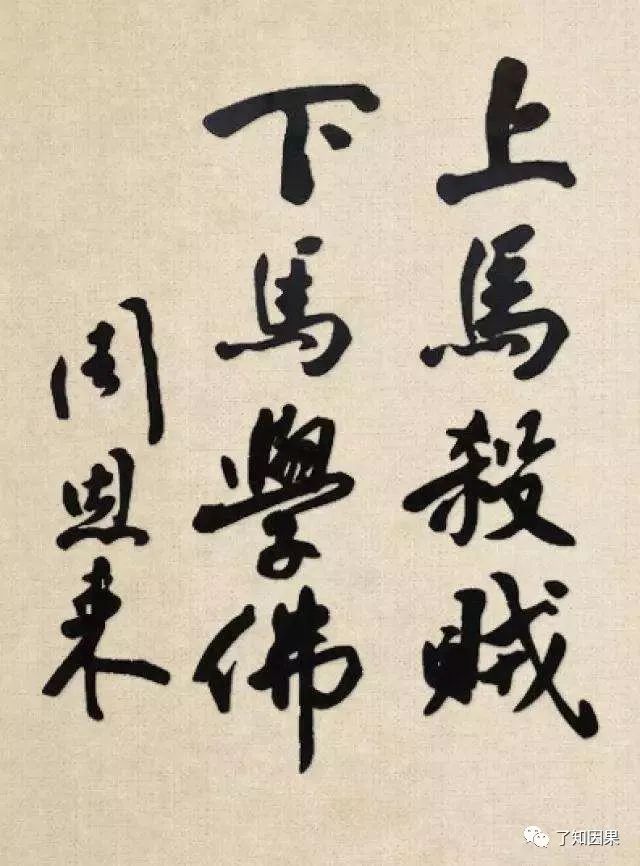 上馬殺賊
下馬學佛
周恩来
了知因果